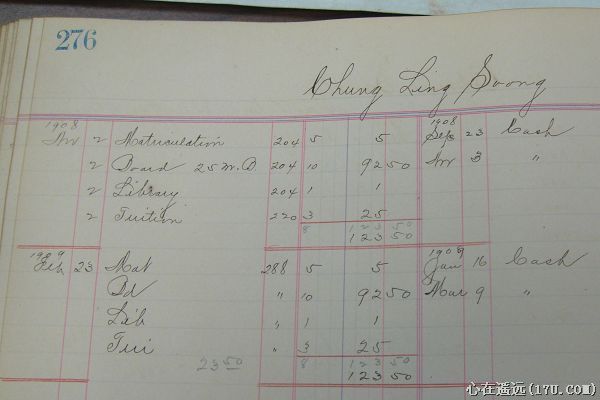 276
Chung Ling Soong
1908 Nov 2 Matriculation 204 5 5 1908 Sep 23 Cash
2 Board 25 M.D 204 10 92 50 Nov 3 "
2 Library 204 1 1
2 Tuition 220 3 25
8 123 50
123 50
1909 Feb 23 Mat 288 5 5 1909 Jan 16 Cash
Bd " 10 92 50 Mar 9 "
Lib " 1 1
Tui " 3 25
23 50 8 123 50
123 50
心在遥远(17U.COM)